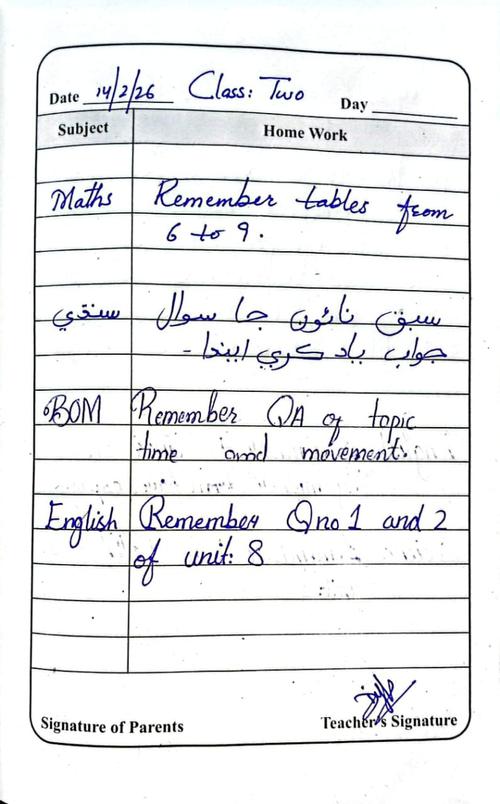 Date 14/2/26 Class: Two Day
Subject Home Work
Maths Remember tables from
6 to 9.
سنڌي سبق نائون جا سوال
جواب ياد ڪري ايندا -
BOM Remember QA of topic
time and movement.
English Remember Q no 1 and 2
of unit: 8
Signature of Parents Teacher's Signature